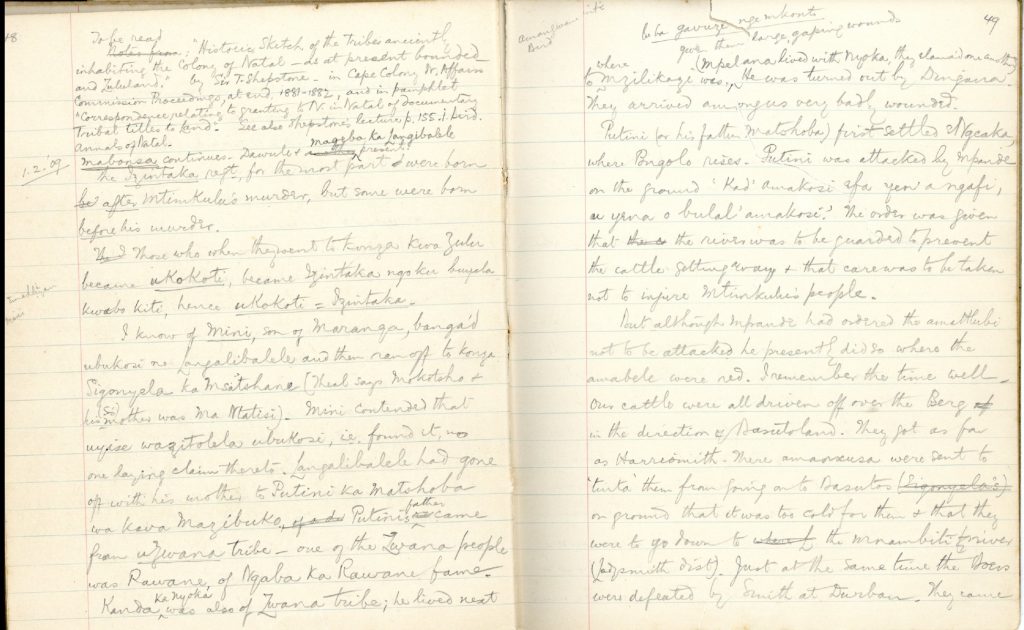 48
To be read
Notes from: "Historic Sketch of the Tribes anciently
inhabiting the Colony of Natal – as at present bounded –
and Zululand." by Sir T. Shepstone – in Cape Colony N. Affairs
Commission Proceedings, at end, 1881-1882, and in pamphlet
"Correspondence relating to granting to N. in Natal of documentary
Tribal titles to land." See also Shepstone's lecture, p. 155. I. Bird.
Annals of Natal.
1.2.09.
Mabonsa continues. Dawula & Magqba ka Langibalele present
The Izintaka regt, for the most part & were born
be after Mtimkulu's murder, but some were born
before his murder.
Those who when they went to konza kwa Zulu
became uKokoti, became Izintaka ngoku buyela
kwabo kiti, hence uKokoti = Izintaka.
I know of Mini, son of Maranga, banga'd
ubukosi no Langalibalele and then ran off to konza
Sigonyela ka Msitshane (Theal says Mokotsho &
his (S's) mother was Ma Ntatisi). Mini contended that
uyise wazitolela ubukosi, i.e. found it, no
one laying claim thereto. Langalibalele had gone
off with his mother to Putini ka Matshoba
wa kwa Mazibuko, Putini's father came
from uZwana tribe – one of the Zwana people
was Rawane, of Ngaba ka Rawane fame.
Kanda ka Nyoka was also of Zwana tribe; he lived next
49
amangwane
Bird
be ba gavuze ngemkonto
gave them large, gaping wounds
where (Mpelana lived with Nyoka, they
to Mzilikazi was. He was turned out by Dingana.
They arrived among us very badly wounded.
Putini (or his father Matshoba) first settled at Ngcaka,
where Bngolo rises. Putini was attacked by Mpande
on the ground 'Kad' amakosi efa yen' a ngafi,
u yena o bulal' amakosi.' The order was given
that the river was to be guarded to prevent
the cattle getting away & that care was to be taken
not to injure Mtimkulu's people.
But although Mpande had ordered the amaHlubi
not to be attacked he presently did so where the
amabele were red. I remember the time well.
Our cattle were all driven off over the Berg
in the direction of Basutoland. They got as far
as Harrismith. There amanxusa were sent to
'turta' them from going on to Basutos (Sigonyela's)
on ground that it was too cold for them & that they
were to go down to the Mnambiti river
(Ladysmith Dist). Just at the same time the Boers
were defeated by Smith at Durban. They came